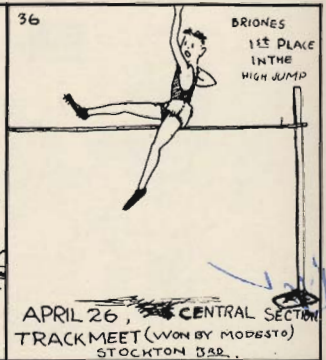 36
BRIONES
1st PLACE
IN THE
HIGH JUMP
APRIL 26, CENTRAL SECTION
TRACK MEET (WON BY MODESTO)
STOCKTON 3RD.